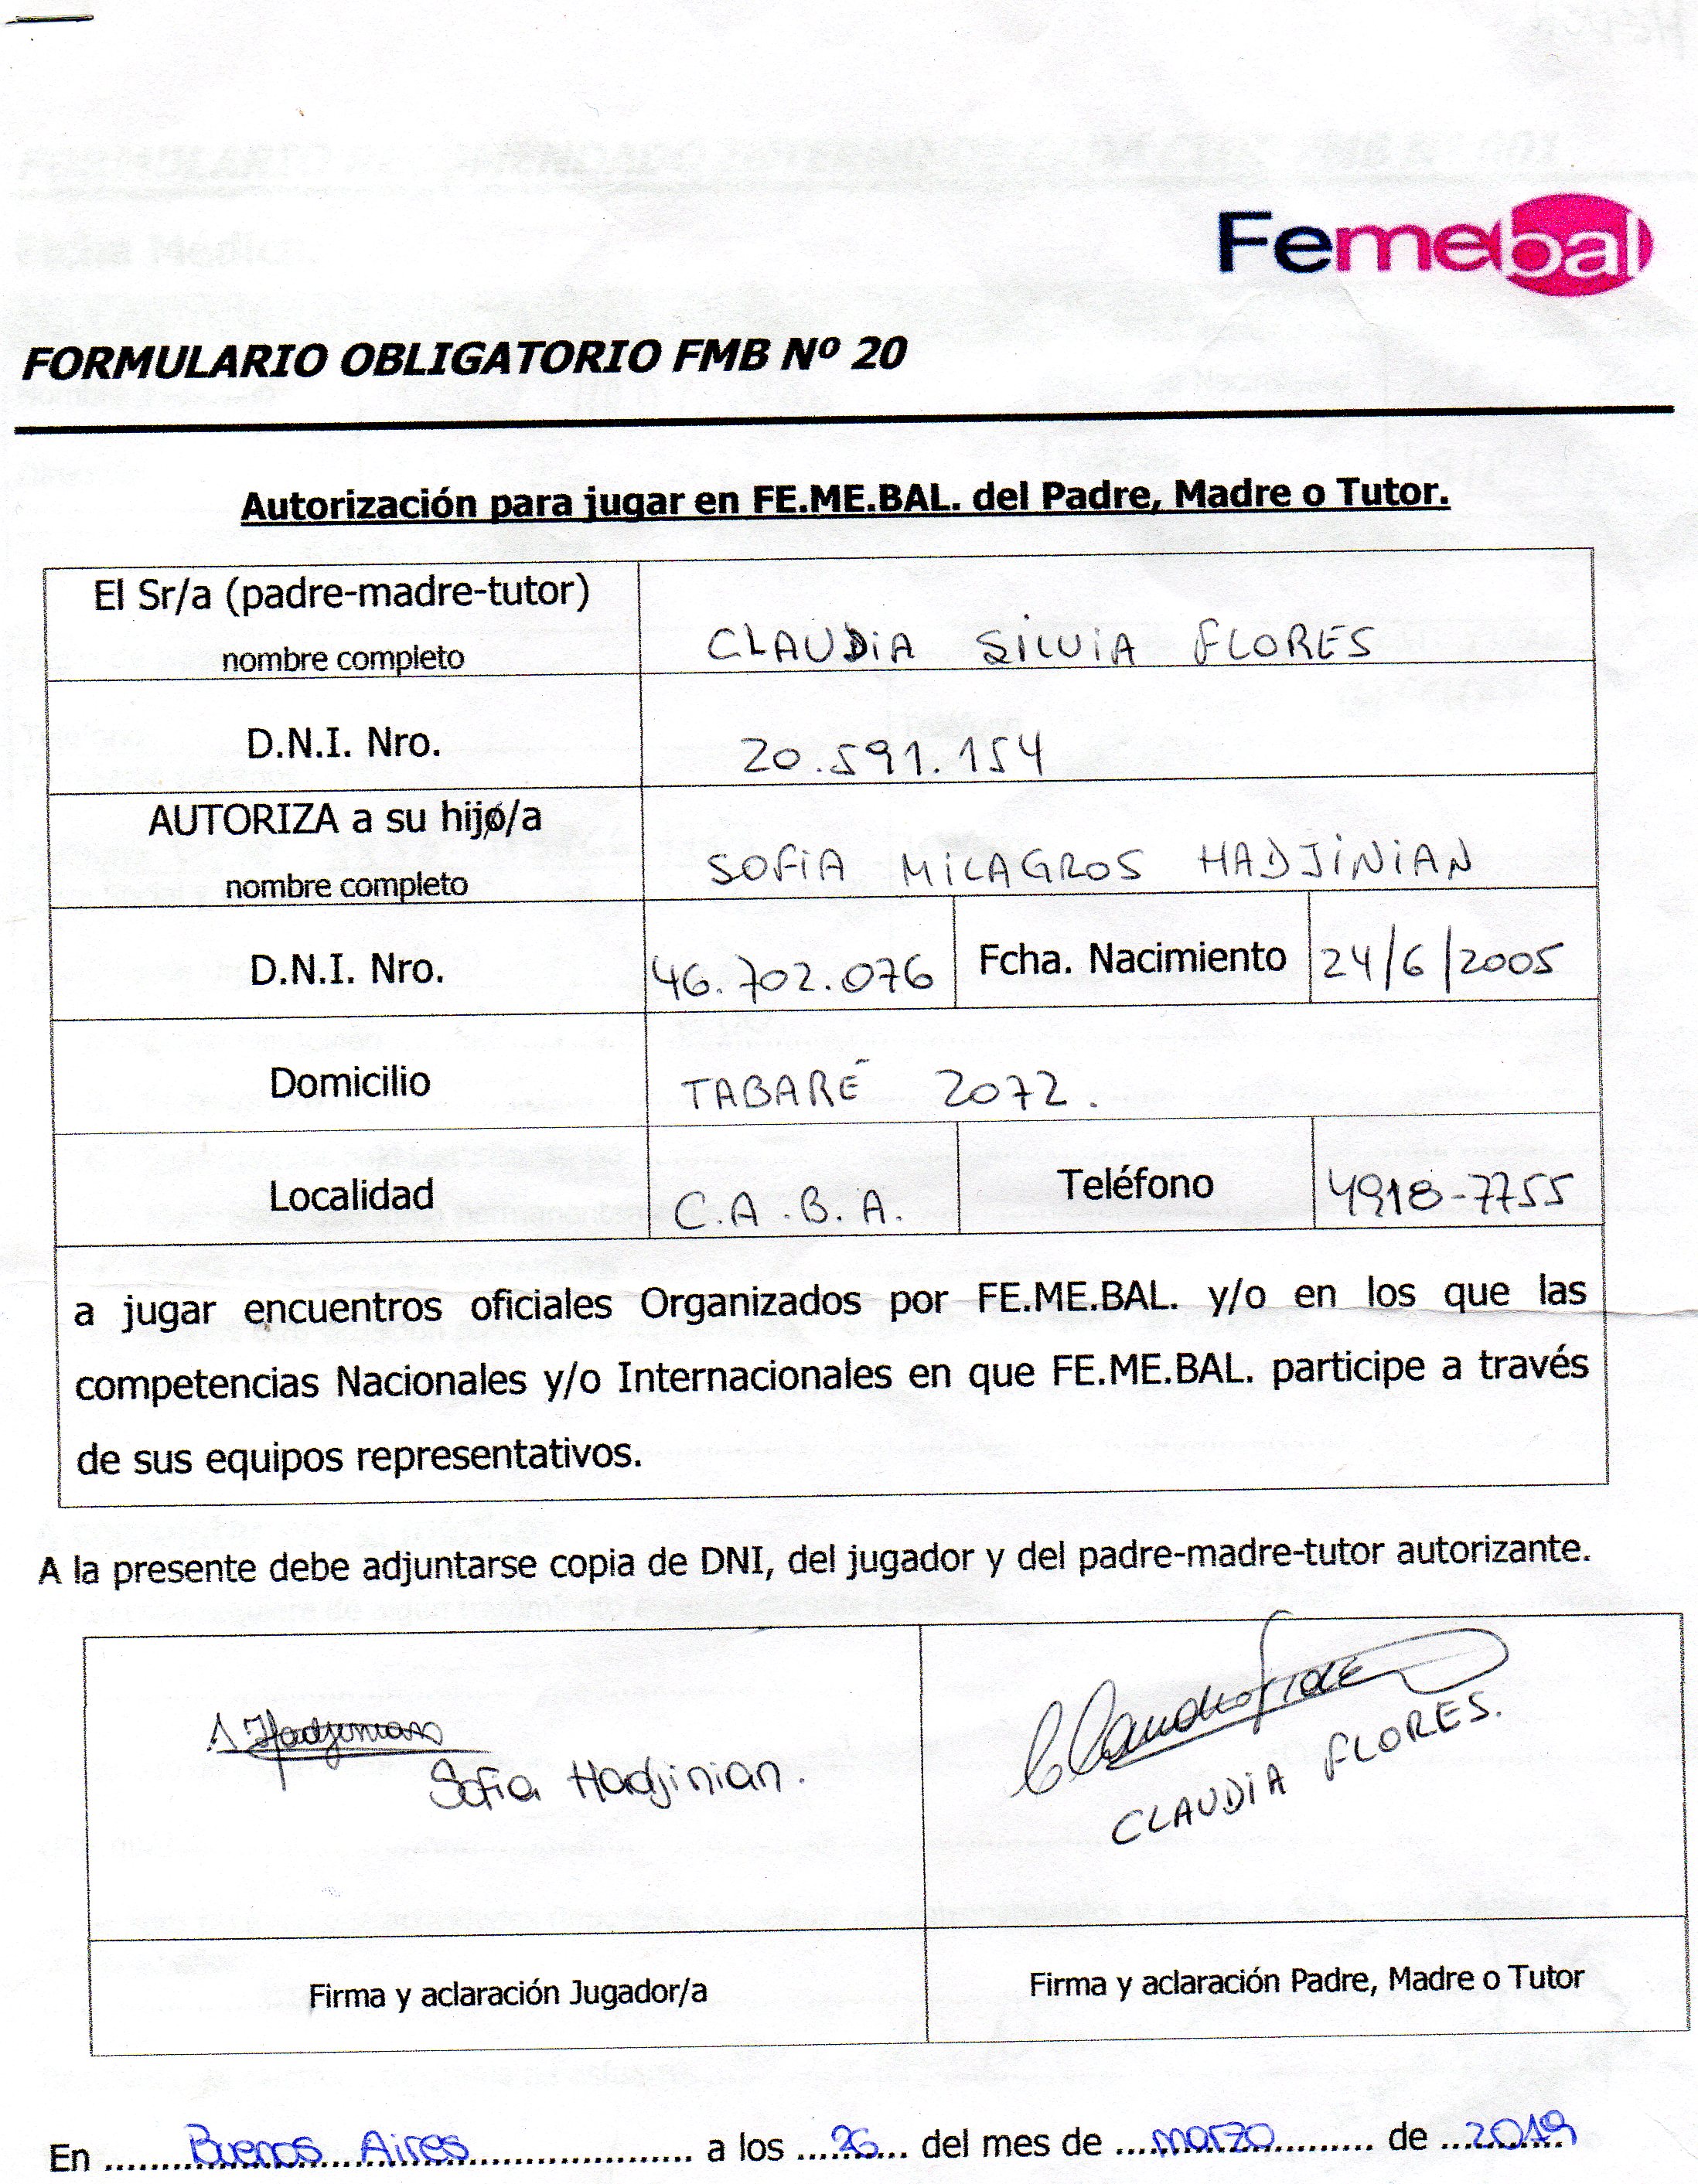 Femebal
FORMULARIO OBLIGATORIO FMB Nº 20
Autorización para jugar en FE.ME.BAL. del Padre, Madre o Tutor.
El Sr/a (padre-madre-tutor)
nombre completo
CLAUDIA SILVIA FLORES
D.N.I. Nro.
20.591.154
AUTORIZA a su hijo/a
nombre completo
SOFIA MILAGROS HADJINIAN
D.N.I. Nro. 46.702.076 Fcha. Nacimiento 24/6/2005
Domicilio TABARÉ 2072.
Localidad C.A.B.A. Teléfono 4918-7755
a jugar encuentros oficiales Organizados por FE.ME.BAL. y/o en los que las
competencias Nacionales y/o Internacionales en que FE.ME.BAL. participe a través
de sus equipos representativos.
A la presente debe adjuntarse copia de DNI, del jugador y del padre-madre-tutor autorizante.
Hadjinian
Sofia Hadjinian.
Claudia Flores
CLAUDIA FLORES.
Firma y aclaración Jugador/a
Firma y aclaración Padre, Madre o Tutor
En Buenos Aires a los 26 del mes de marzo de 2019